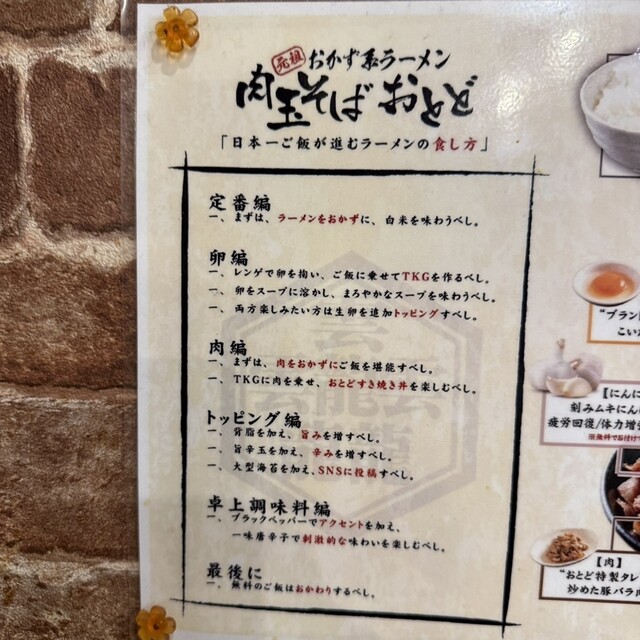 元祖 おかず系ラーメン
肉玉そば おとど
「日本一ご飯が進むラーメンの食し方」
定番編
一、まずは、ラーメンをおかずに、白米を味わうべし。
卵編
一、レンゲで卵を掬い、ご飯に乗せてTKGを作るべし。
一、卵をスープに溶かし、まろやかなスープを味わうべし。
一、両方楽しみたい方は生卵を追加トッピングすべし。
肉編
一、まずは、肉をおかずにご飯を堪能すべし。
一、TKGに肉を乗せ、おとどすき焼き丼を楽しむべし。
トッピング編
一、背脂を加え、旨みを増すべし。
一、旨辛玉を加え、辛みを増すべし。
一、大型海苔を加え、SNSに投稿すべし。
卓上調味料編
一、ブラックペッパーでアクセントを加え、
一味唐辛子で刺激的な味わいを楽しむべし。
最後に
一、無料のご飯はおかわりするべし。
"ブラン
こい
【にんに
刻みムキにん
疲労回復/体力増
※無料でお付け
【肉】
"おとど特製タレ
炒めた豚バラ